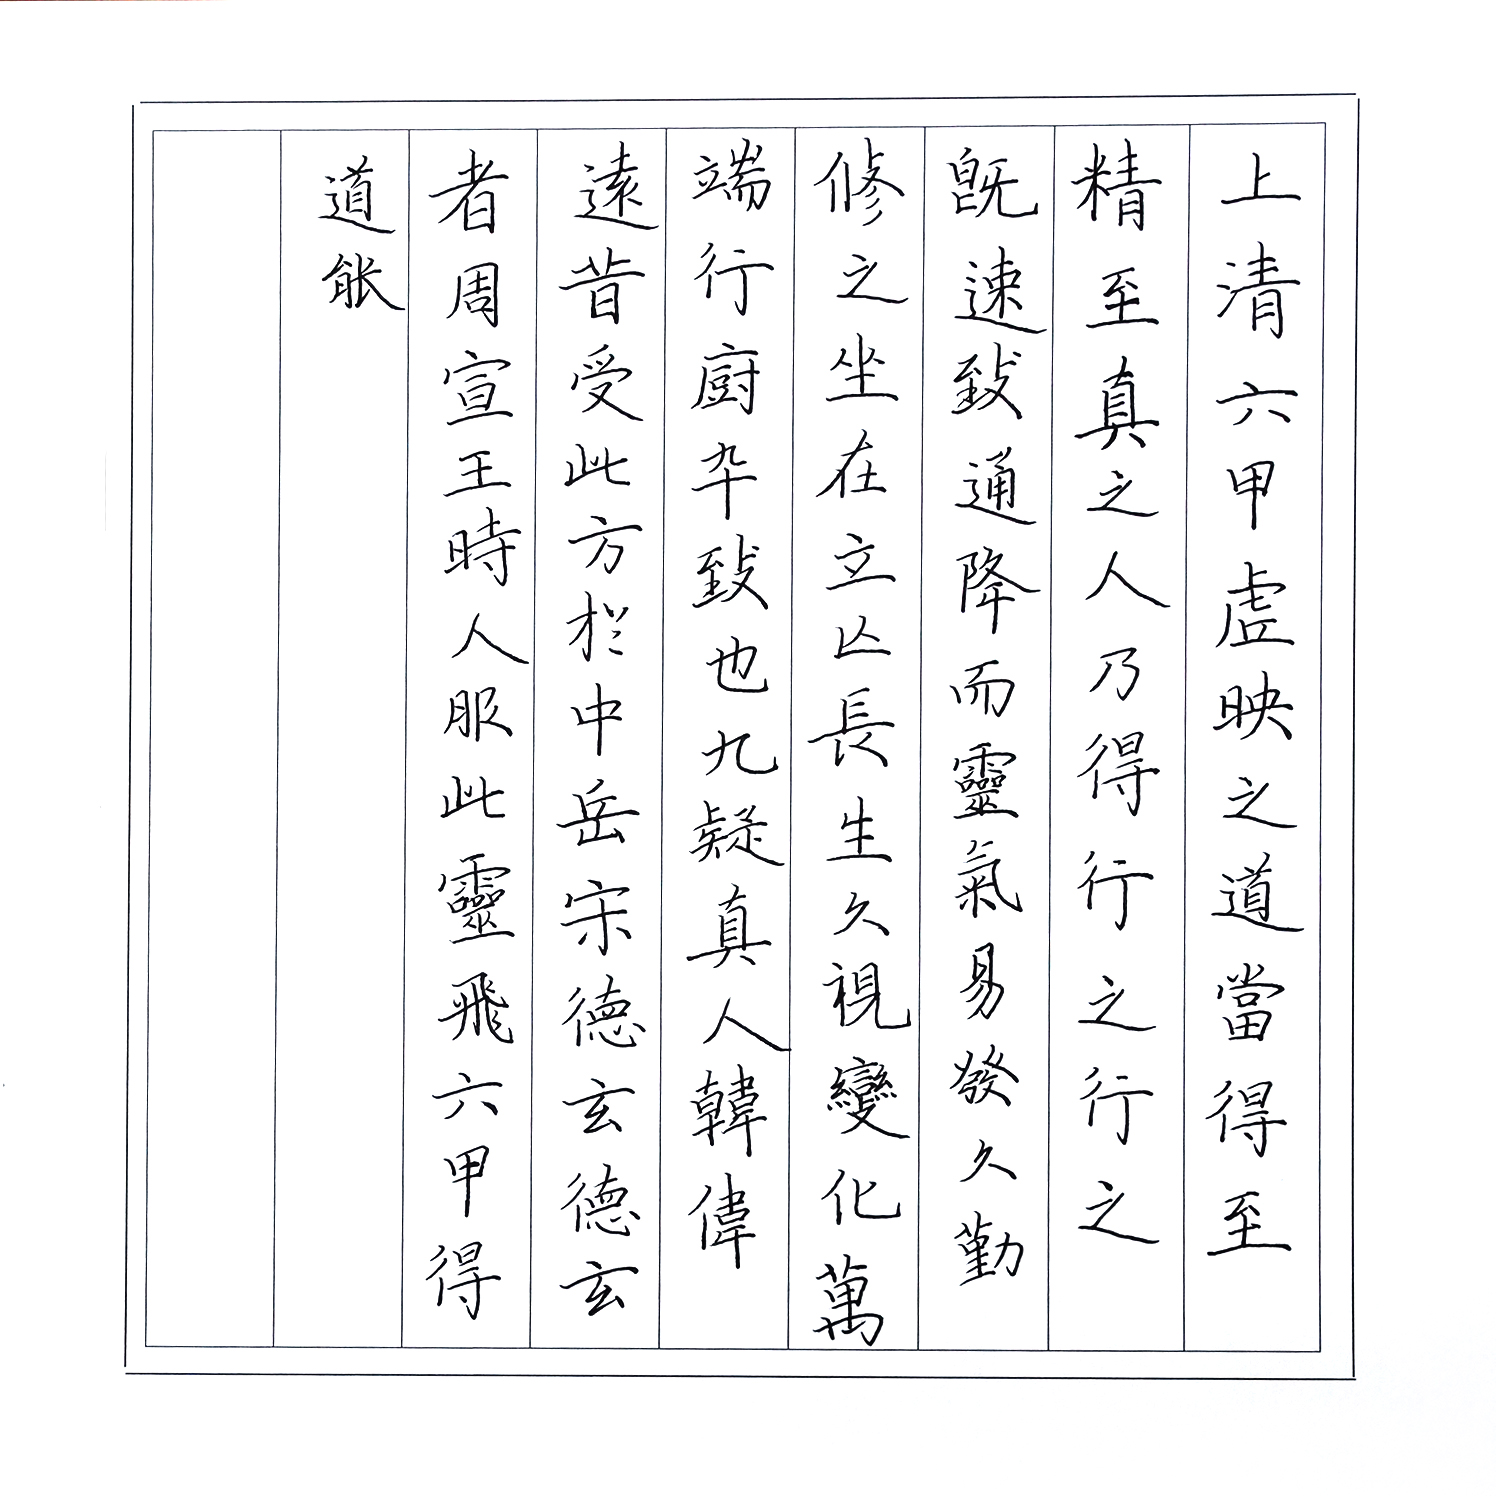 上清六甲虚映之道當得至
精至真之人乃得行之行之
既速致通降而靈氣易發久勤
修之坐在立亾長生久視變化萬
端行廚卒致也九疑真人韓偉
遠昔受此方於中岳宋德玄德玄
者周宣王時人服此靈飛六甲得
道能